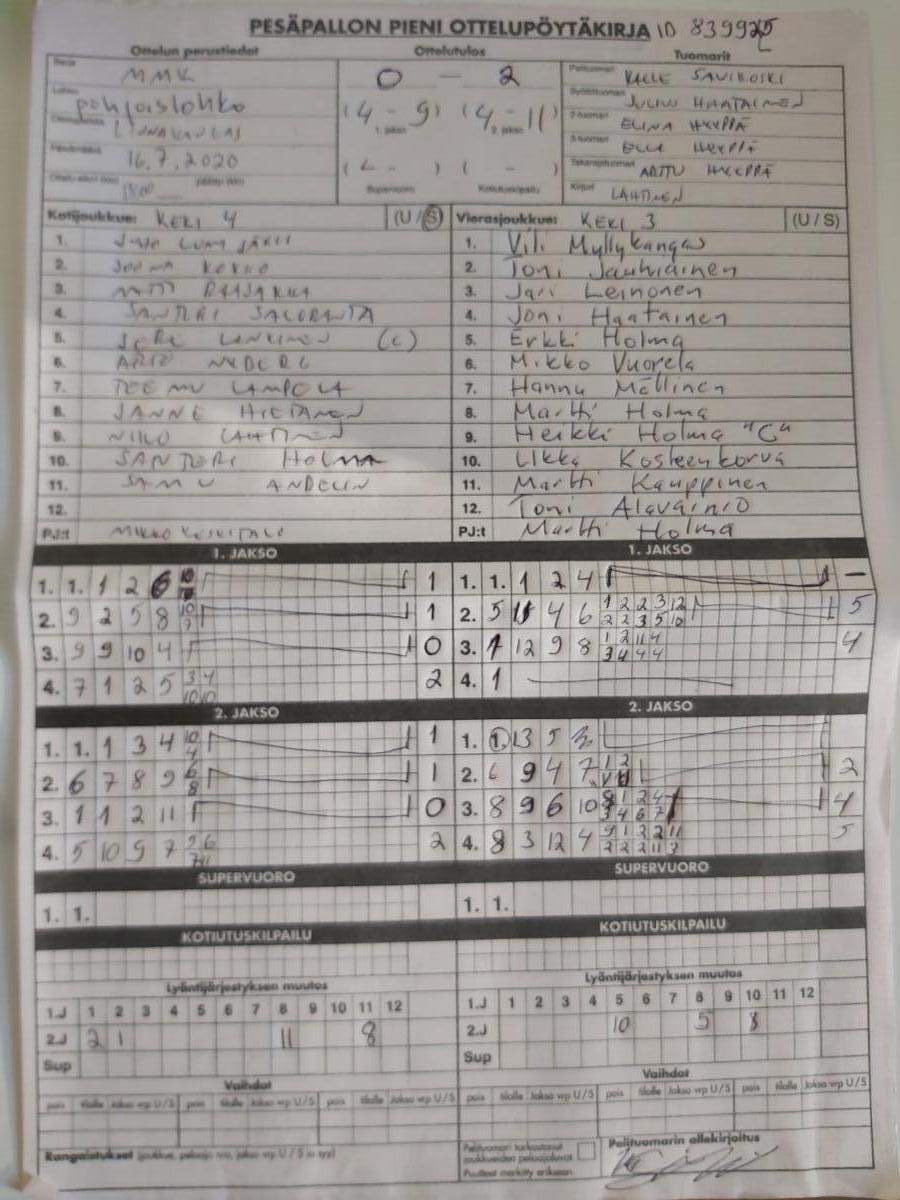 PESÄPALLON PIENI OTTELUPÖYTÄKIRJA ID 839925
Ottelun perustiedot
Sarja MMK
Lohko pohjoislohko
LINNAKANGAS
Päivämäärä 16.7.2020
1800
Ottelutulos
0 - 2
(4 - 9) (4 - 11)
1. jakso 2. jakso
( - ) ( - )
Supervuoro Kotiutuskilpailu
Tuomarit
Pelituomari KALLE SAVIKOSKI
Syöttötuomari JULIUS HAATAINEN
2-tuomari ELINA HYYPPÄ
3-tuomari ELLI HYYPPÄ
Takarajatuomari ARTTU HYYPPÄ
Kirjuri LAHTINEN
Kotijoukkue: KEKI 4 (U/S)
1. JUHO LUMIJÄRVI
2. JORMA KOKKO
3. MATTI RAAJAKKA
4. SANTERI SALORANTA
5. JERE (C)
6. ARTO NYBERG
7. TEEMU LAMPELA
8. JANNE HIETANEN
9. NIILO LAHTINEN
10. SANTERI HOLMA
11. SAMU ANDELIN
12.
PJ:t MIKKO KESKITALO
Vierasjoukkue: KEKI 3 (U/S)
1. Vili Myllykangas
2. Toni Jauhiainen
3. Jari Leinonen
4. Joni Haatainen
5. Erkki Holma
6. Mikko Vuorela
7. Hannu Mällinen
8. Martti Holma
9. Heikki Holma "C"
10. Ilkka Kosteenkorva
11. Martti Kauppinen
12. Toni Alavainio
PJ:t Martti Holma
1. JAKSO
1. 1. 1 2 6 10 1
2. 9 2 5 8 10 7 1
3. 9 9 10 4 0
4. 7 1 2 5 3 4 10 10 2
1. JAKSO
1. 1. 1 2 4 –
2. 5 11 4 6 1 2 2 3 12 5
2 2 3 5 12
3. 1 12 9 8 1 2 11 4 4
3 4 4 4
4. 1
2. JAKSO
1. 1. 1 3 4 10 4 1
2. 6 7 8 9 6 8 1
3. 1 1 2 11 0
4. 5 10 9 7 2
2. JAKSO
1. 1. 3 5 3
2. 6 9 4 7 1 2 2
3. 8 9 6 10 8 1 2 4 4
3 4 6 7
4. 8 3 12 4 9 1 2 2 11 5
2 2 2 11 3
SUPERVUORO
1. 1.
SUPERVUORO
1. 1.
KOTIUTUSKILPAILU
KOTIUTUSKILPAILU
Lyöntijärjestyksen muutos
1.J 1 2 3 4 5 6 7 8 9 10 11 12
2.J 2 1 11 8
Sup
Lyöntijärjestyksen muutos
1.J 1 2 3 4 5 6 7 8 9 10 11 12
2.J 10 5 8
Sup
Vaihdot
pois tilalle Jakso vrp U/S pois tilalle Jakso vrp U/S pois tilalle Jakso vrp U/S
Vaihdot
pois tilalle Jakso vrp U/S pois tilalle Jakso vrp U/S pois tilalle Jakso vrp U/S
Rangaistukset (joukkue, pelaaja nro, jakso vrp U/S ja syy)
Pelituomari tarkastanut joukkueiden pelaajaluvat.
Puutteet merkitty erikseen.
Pelituomarin allekirjoitus